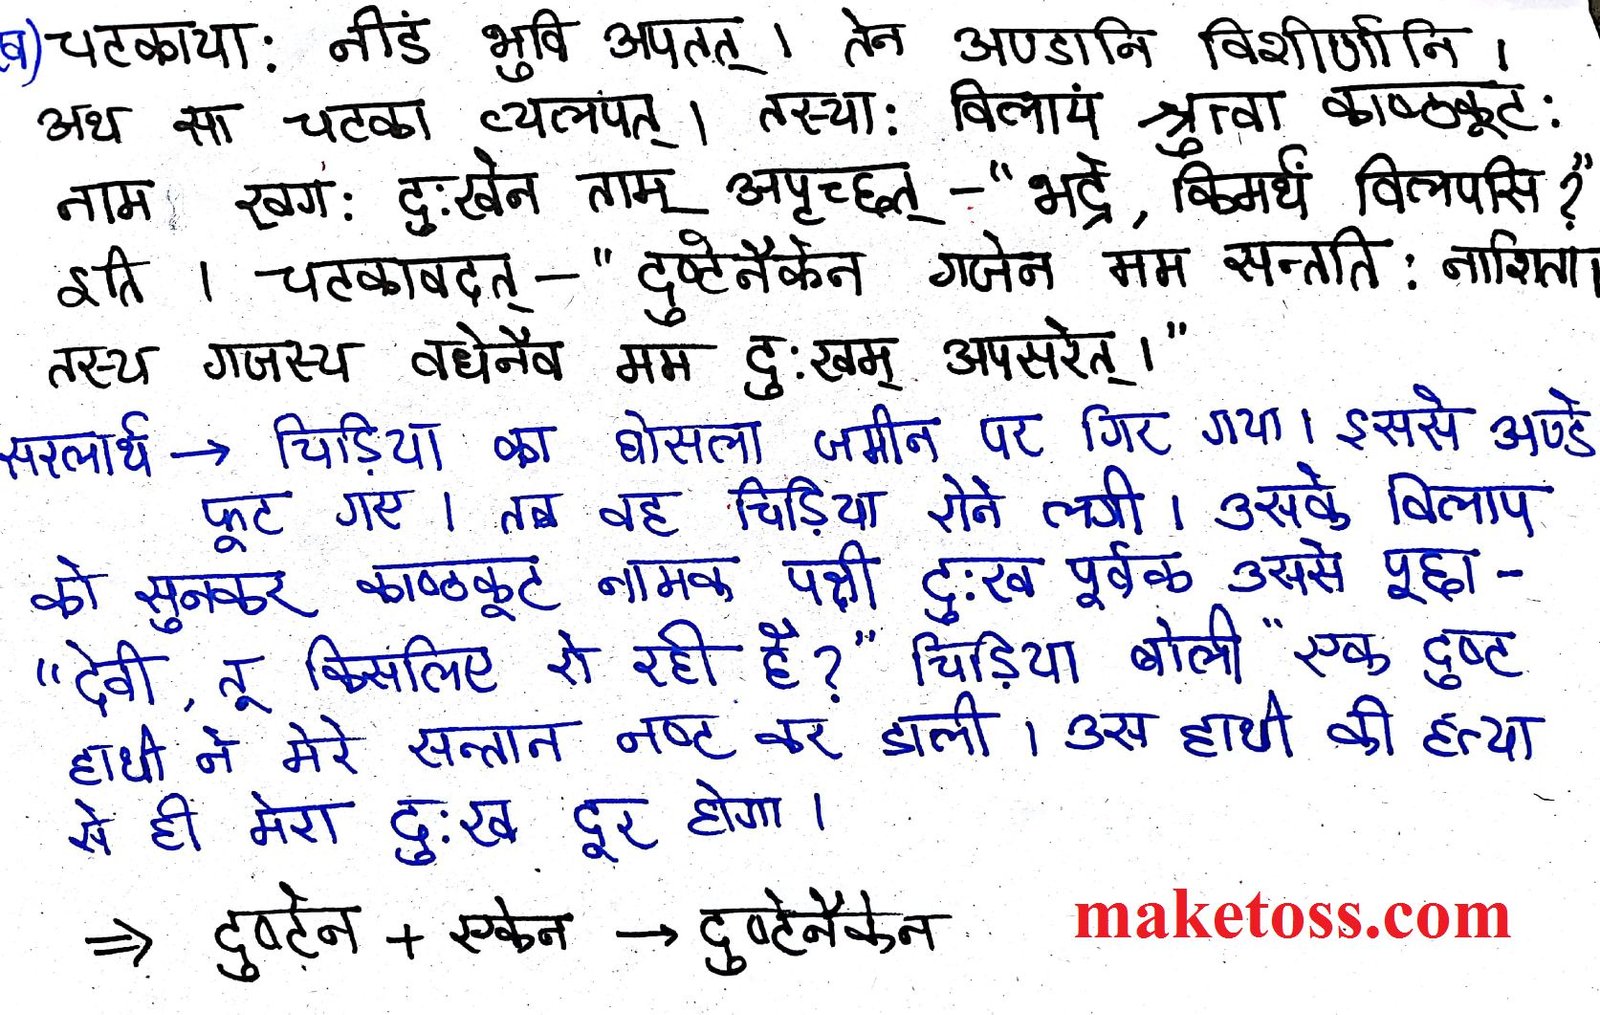 ख) चटकायाः नीडं भुवि अपतत्। तेन अण्डानि विशीर्णानि।
अथ सा चटका व्यलपत्। तस्याः विलापं श्रुत्वा काष्ठकूटः
नाम खगः दुःखेन ताम् अपृच्छत् – "भद्रे, किमर्थं विलपसि?"
इति । चटकावदत् – "दुष्टेनैकेन गजेन मम सन्ततिः नाशिता।
तस्य गजस्य वधेनैव मम दुःखम् अपसरेत्।"
सरलार्थ → चिड़िया का घोसला जमीन पर गिर गया। इससे अण्डे
फूट गए। तब वह चिड़िया रोने लगी। उसके विलाप
को सुनकर काष्ठकूट नामक पक्षी दुःख पूर्वक उससे पूछा –
"देवी, तू किसलिए रो रही है?" चिड़िया बोली "एक दुष्ट
हाथी ने मेरे सन्तान नष्ट कर डाली। उस हाथी की हत्या
से ही मेरा दुःख दूर होगा।
⇒ दुष्टेन + एकेन → दुष्टेनैकेन
maketoss.com